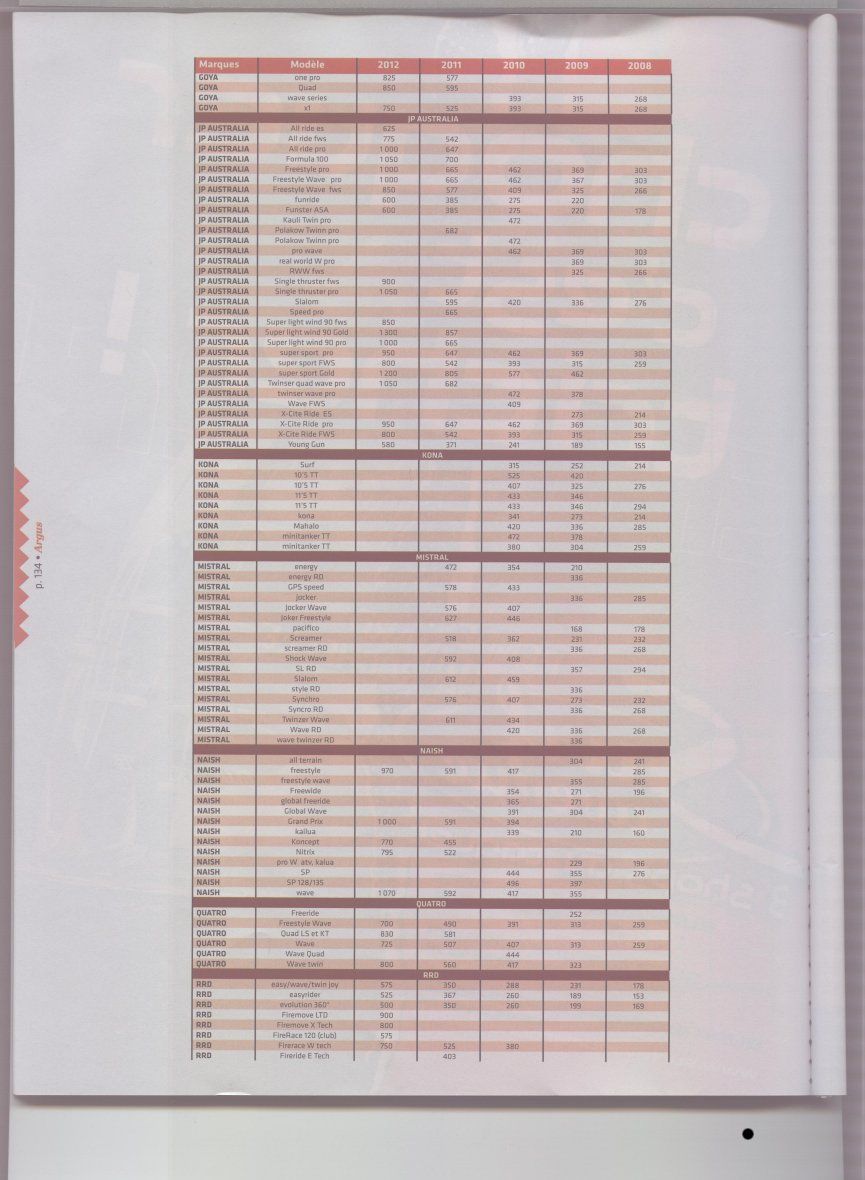 Marques Modèle 2012 2011 2010 2009 2008
GOYA one pro 825 577
GOYA Quad 850 595
GOYA wave series 393 315 268
GOYA x1 750 525 393 315 268
JP AUSTRALIA
JP AUSTRALIA All ride es 625
JP AUSTRALIA All ride fws 775 542
JP AUSTRALIA All ride pro 1 000 647
JP AUSTRALIA Formula 100 1 050 700
JP AUSTRALIA Freestyle pro 1 000 665 462 369 303
JP AUSTRALIA Freestyle Wave pro 1 000 665 462 367 303
JP AUSTRALIA Freestyle Wave fws 850 577 409 325 266
JP AUSTRALIA funride 600 385 275 220
JP AUSTRALIA Funster ASA 600 385 275 220 178
JP AUSTRALIA Kauli Twin pro 472
JP AUSTRALIA Polakow Twinn pro 682
JP AUSTRALIA Polakow Twinn pro 472
JP AUSTRALIA pro wave 462 369 303
JP AUSTRALIA real world W pro 369 303
JP AUSTRALIA RWW fws 325 266
JP AUSTRALIA Single thruster fws 900
JP AUSTRALIA Single thruster pro 1 050 665
JP AUSTRALIA Slalom 595 420 336 276
JP AUSTRALIA Speed pro 665
JP AUSTRALIA Super light wind 90 fws 850
JP AUSTRALIA Super light wind 90 Gold 1 300 857
JP AUSTRALIA Super light wind 90 pro 1 000 665
JP AUSTRALIA super sport pro 950 647 462 369 303
JP AUSTRALIA super sport FWS 800 542 393 315 259
JP AUSTRALIA super sport Gold 1 200 805 577 462
JP AUSTRALIA Twinser quad wave pro 1 050 682
JP AUSTRALIA twinser wave pro 472 378
JP AUSTRALIA Wave FWS 409
JP AUSTRALIA X-Cite Ride ES 273 214
JP AUSTRALIA X-Cite Ride pro 950 647 462 369 303
JP AUSTRALIA X-Cite Ride FWS 800 542 393 315 259
JP AUSTRALIA Young Gun 580 371 241 189 155
KONA
KONA Surf 315 252 214
KONA 10'5 TT 525 420
KONA 10'5 TT 407 325 276
KONA 11'5 TT 433 346
KONA 11'5 TT 433 346 294
KONA kona 341 273 214
KONA Mahalo 420 336 285
KONA minitanker TT 472 378
KONA minitanker TT 380 304 259
MISTRAL
MISTRAL energy 472 354 210
MISTRAL energy RD 336
MISTRAL GPS speed 578 433
MISTRAL Jocker 336 285
MISTRAL Jocker Wave 576 407
MISTRAL Joker Freestyle 627 446
MISTRAL pacifico 168 178
MISTRAL Screamer 518 362 231 232
MISTRAL screamer RD 336 268
MISTRAL Shock Wave 592 408
MISTRAL SL RD 357 294
MISTRAL Slalom 612 459
MISTRAL style RD 336
MISTRAL Synchro 576 407 273 232
MISTRAL Syncro RD 336 268
MISTRAL Twinzer Wave 611 434
MISTRAL Wave RD 420 336 268
MISTRAL wave twinzer RD 336
NAISH
NAISH all terrain 304 241
NAISH freestyle 970 591 417 285
NAISH freestyle wave 355 285
NAISH Freewide 354 271 196
NAISH global freeride 365 271
NAISH Global Wave 391 304 241
NAISH Grand Prix 1 000 591 394
NAISH kailua 339 210 160
NAISH Koncept 770 455
NAISH Nitrix 795 522
NAISH pro W atv, kalua 229 196
NAISH SP 444 355 276
NAISH SP 128/135 496 397
NAISH wave 1 070 592 417 355
QUATRO
QUATRO Freeride 252
QUATRO Freestyle Wave 700 490 391 313 259
QUATRO Quad LS et KT 830 581
QUATRO Wave 725 507 407 313 259
QUATRO Wave Quad 444
QUATRO Wave twin 800 560 417 323
RRD
RRD easy/wave/twin joy 575 350 288 231 178
RRD easyrider 525 367 260 189 153
RRD evolution 360° 500 350 260 199 169
RRD Firemove LTD 900
RRD Firemove X Tech 800
RRD FireRace 120 (club) 575
RRD Firerace W tech 750 525 380
RRD Fireride E Tech 403
p. 134 • Argus